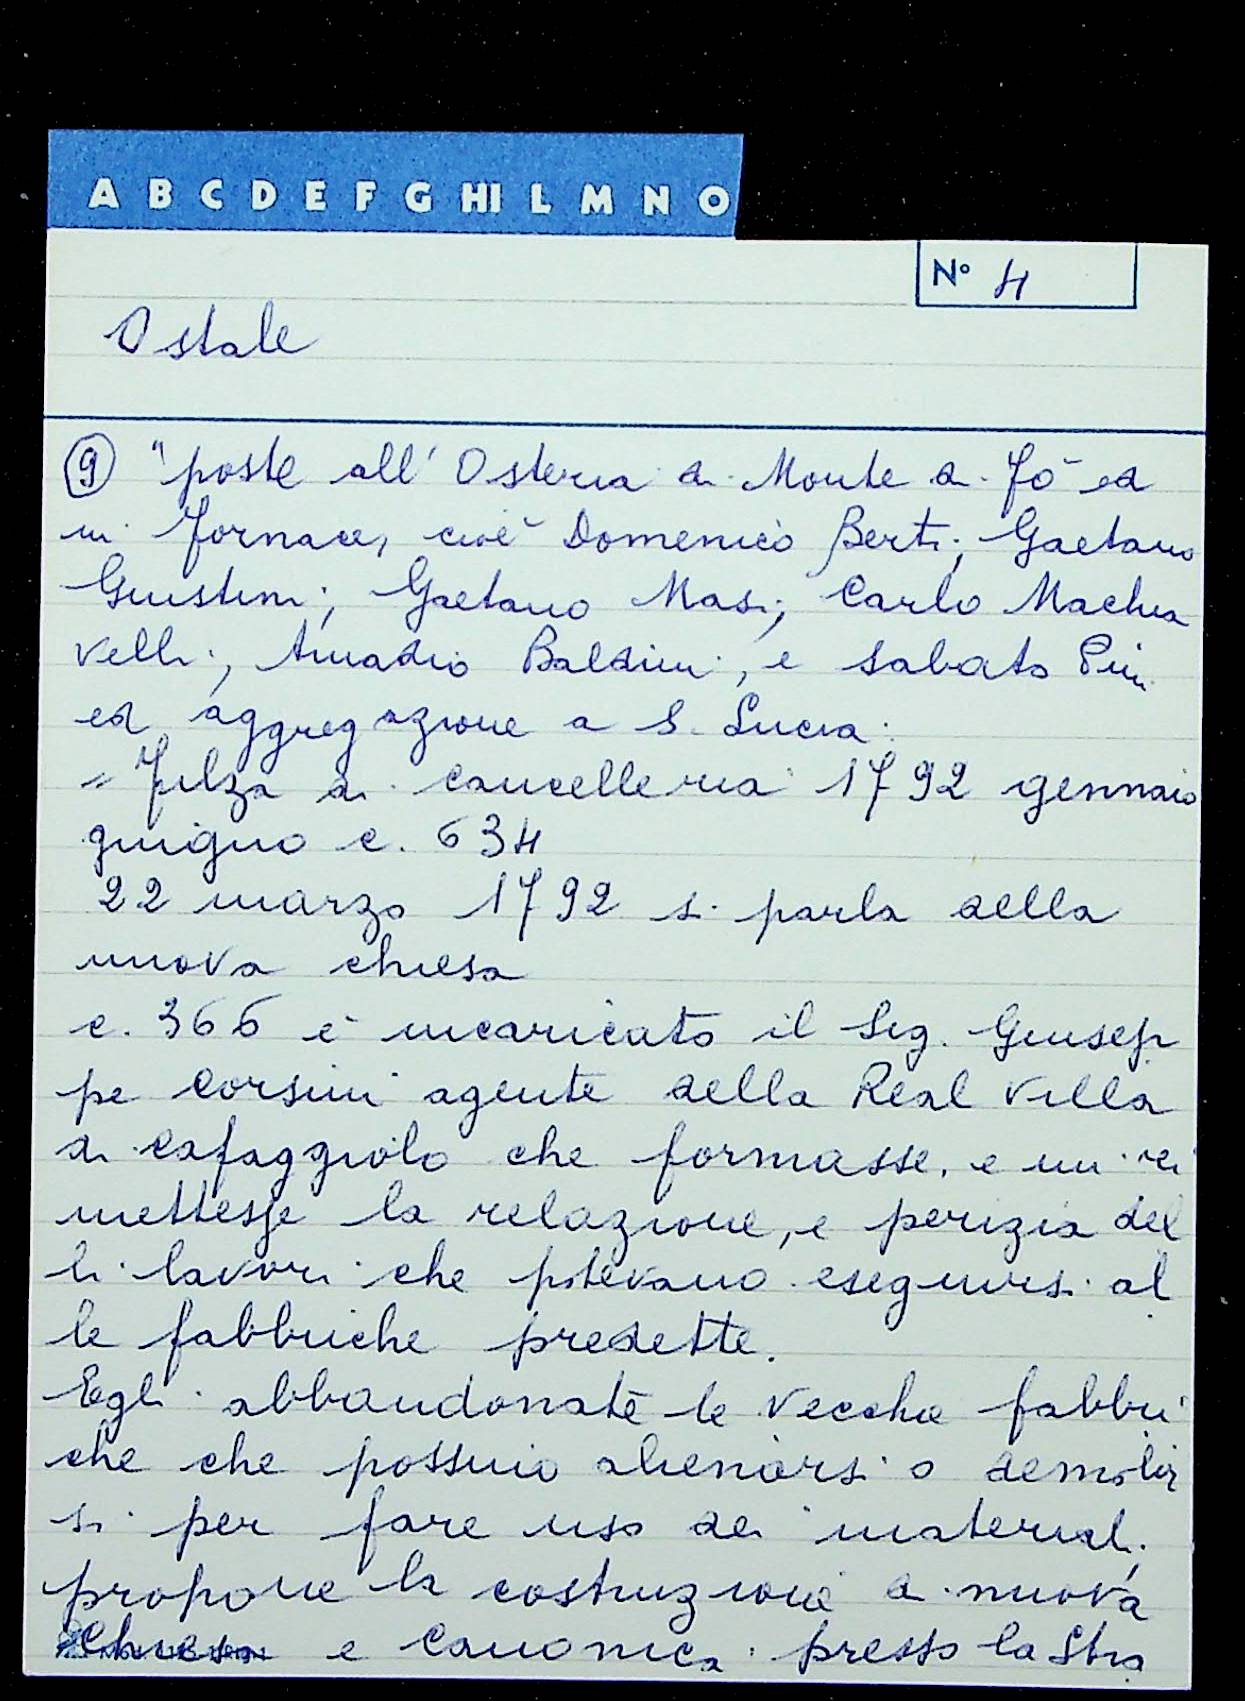 A B C D E F G HI L M N O
N° 4
Ostale
9 "poste all'Osteria di Monte di Fò ed
in Fornace, cioè Domenico Berti; Gaetano
Giustini; Gaetano Masi; Carlo Machia
velli; Amadio Baldini; e Sabato Pini
ed aggregazione a S. Lucia:
= Filza di cancelleria 1792 gennaio
giugno c. 634
22 marzo 1792 si parla della
nuova chiesa
c. 366 è incaricato il Sig. Giusep
pe Corsini agente della Real Villa
di Cafaggiolo che formasse, e mi ri
mettesse la relazione, e perizia del
li lavori che potevano eseguirsi al
le fabbriche predette.
Egli abbandonate le vecchie fabbri
che che possino alienarsi o demolir
si per fare uso dei materiali,
propone la costruzione di nuova
Chiesa e canonica presso la Stra